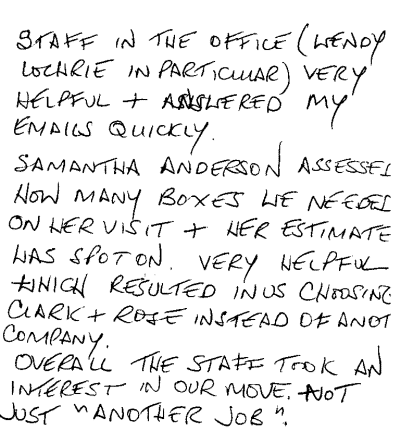 STAFF IN THE OFFICE (WENDY
LOCHRIE IN PARTICULAR) VERY
HELPFUL + ANSWERED MY
EMAILS QUICKLY.
SAMANTHA ANDERSON ASSESSED
HOW MANY BOXES WE NEEDED
ON HER VISIT + HER ESTIMATE
WAS SPOT ON. VERY HELPFUL
WHICH RESULTED IN US CHOOSING
CLARK + ROSE INSTEAD OF ANOT
COMPANY.
OVERALL THE STAFF TOOK AN
INTEREST IN OUR MOVE. NOT
JUST "ANOTHER JOB".